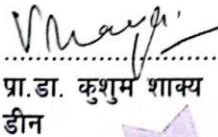 प्रा.डा. कुशुम शाक्य
डीन